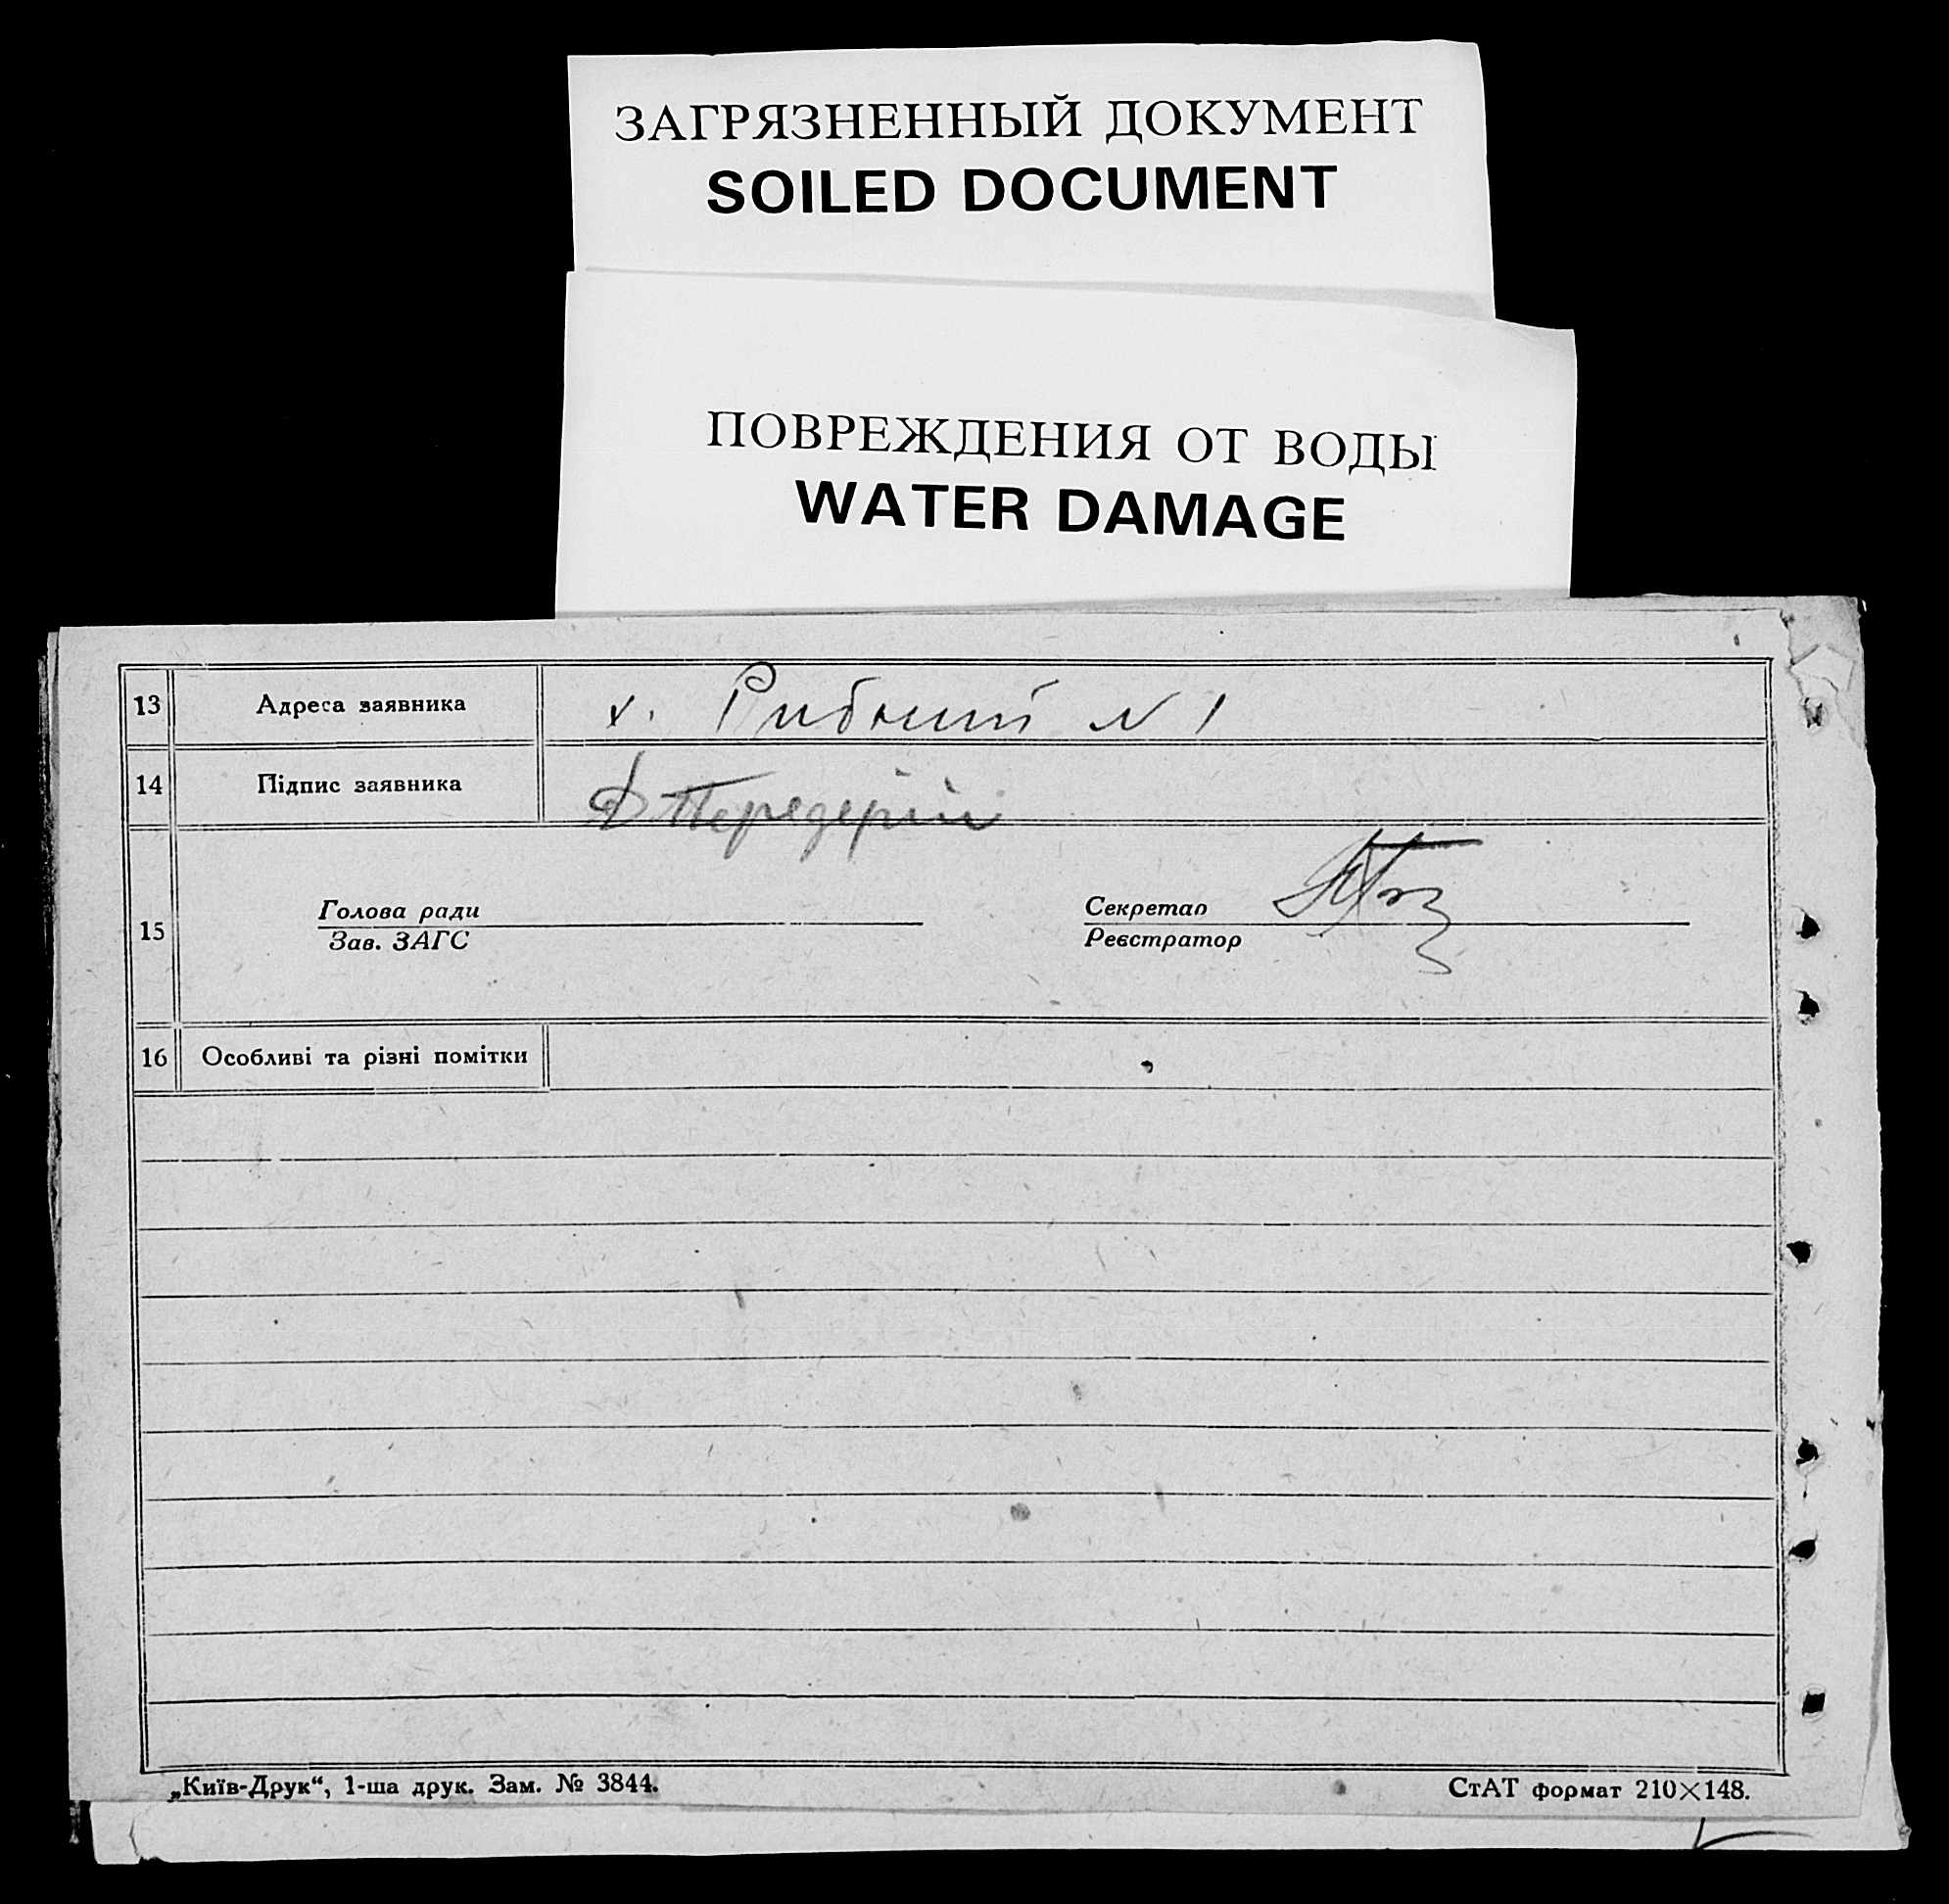 ЗАГРЯЗНЕННЫЙ ДОКУМЕНТ
SOILED DOCUMENT
ПОВРЕЖДЕНИЯ ОТ ВОДЫ
WATER DAMAGE
13 Адреса заявника х. Рибний N 1
14 Підпис заявника Д Передерій
Голова ради Секретар
15
Зав. ЗАГС Реєстратор
16 Особливі та різні помітки
„Київ-Друк“, 1-ша друк. Зам. № 3844. СтАТ формат 210×148.